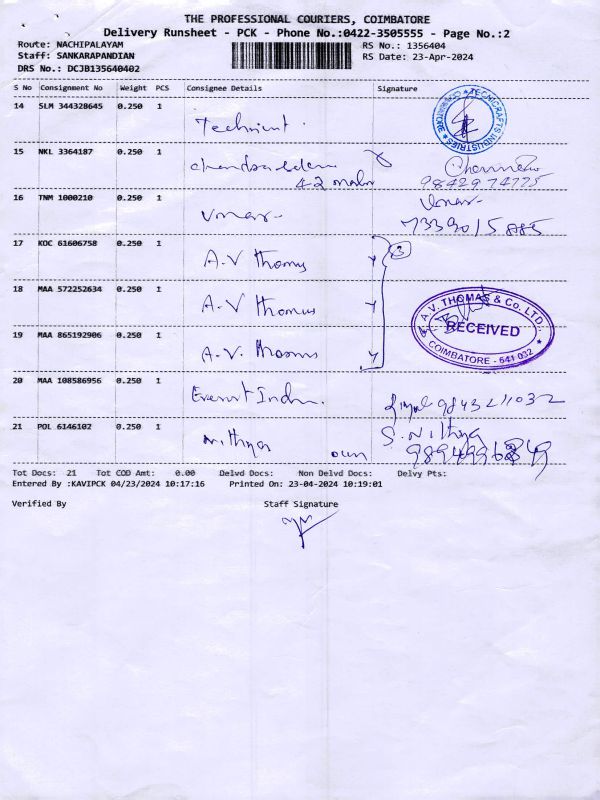 THE PROFESSIONAL COURIERS, COIMBATORE
Delivery Runsheet - PCK - Phone No.:0422-3505555 - Page No.:2
Route: NACHIPALAYAM
Staff: SANKARAPANDIAN
DRS No.: DCJB135640402
RS No.: 1356404
RS Date: 23-Apr-2024
S No Consignment No Weight PCS Consignee Details Signature
14 SLM 344328645 0.250 1
TECHNICRAFTS INDUSTRIES
COIMBATORE
15 NKL 3364187 0.250 1
9842974775
16 TNM 1000210 0.250 1 Umar
Umar
7339015885
17 KOC 61606758 0.250 1 A.V Thomas
3
18 MAA 572252634 0.250 1 A.V Thomas
A.V. THOMAS & Co. LTD.,
RECEIVED
COIMBATORE - 641 032
19 MAA 865192906 0.250 1 A.V. Thomas
20 MAA 108586956 0.250 1
9843211032
21 POL 6146102 0.250 1 Nithya own
S. Nithya
Tot Docs: 21 Tot COD Amt: 0.00 Delvd Docs: Non Delvd Docs: Delvy Pts:
Entered By :KAVIPCK 04/23/2024 10:17:16 Printed On: 23-04-2024 10:19:01
Verified By Staff Signature